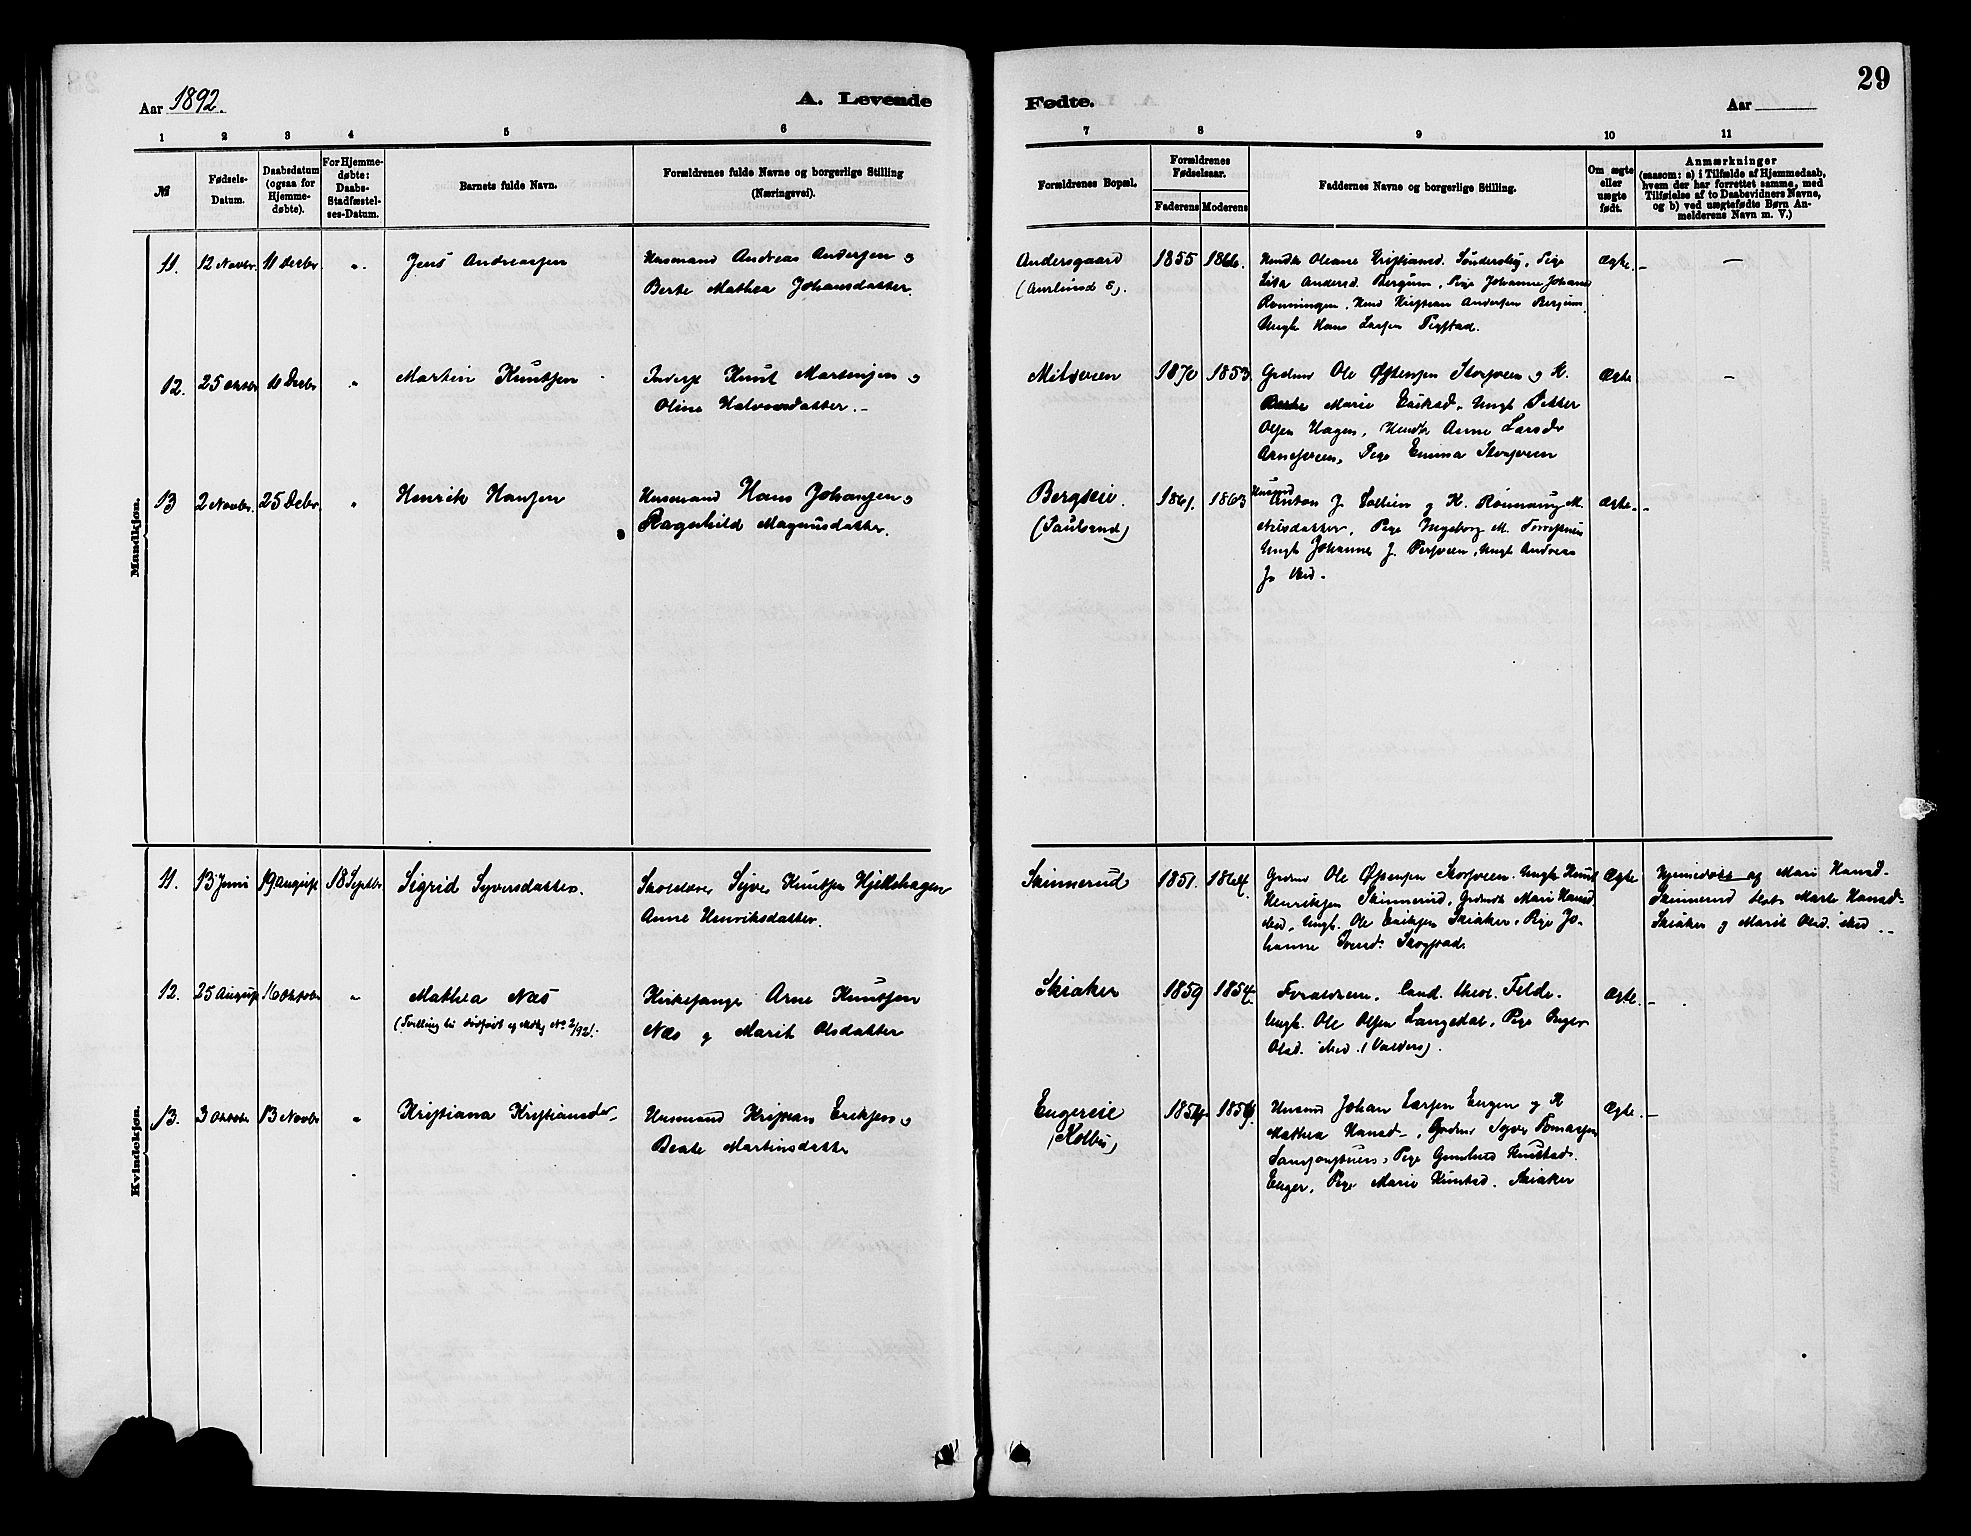 29
Aar 1892.
A. Levende
Fødte.
Aar
1 2 3 4 5 6 7 8 9 10 11
№
Fødsels-
Datum.
Daabsdatum
(ogsaa for
Hjemme-
døbte).
For Hjemme-
døbte:
Daabs-
Stadfæstel-
ses-Datum.
Barnets fulde Navn.
Forældrenes fulde Navne og borgerlige Stilling
(Næringsvei).
Forældrenes Bopæl.
Forældrenes
Fødselsaar.
Faderens
Moderens
Faddernes Navne og borgerlige Stilling.
Om ægte
eller
uægte
født.
Anmærkninger
(saasom: a) i Tilfælde af Hjemmedaab,
hvem der har forrettet samme, med
Tilføielse af to Daabsvidners Navne,
og b) ved uægtefødte Børn An-
melderens Navn m. V.)
Mandkjøn.
11. 12 Novbr. 11 Decbr " Jens Andreassen
Husmand Andreas Andersen og
Berte Mathea Johansdatter.
Andersgaard
(Aurlund E).
1855 1866.
Oleane Kristiansd. Søndersby, Pige
Lisa Andersd. Bergum, Pige Johanne Johans
Rønningen, Kristian Andersen Bergum
Ungk Hans Larsen
Ægte. —
12. 25 Oktbr 11 Decbr " Martin Knutsen
Inderst Knut Martinsen og
Oline Halvorsdatter.
Mitsveen
1870 1853.
Grdmd Ole Østensen Storsveen og K.
Marie Ungk Petter
Olsen Hagen, Anne Larsdr
Arnesveen, Pige Emma Storsveen
Ægte —
13 2 Novbr. 25 Debr " Henrik Hansen
Husmand Hans Johansen og
Ragnhild Magnusdatter.
Bergseie.
(Paulsrud)
1861. 1863
Husmd
Anton J. og K. M.
Nilsdatter, Pige Ingeborg M.
Ungk Johannes J. Persveen, Ungk Andreas
J.
Ægte. —
Kvindekjøn.
11. 13 Juni 19 August 18 Septbr Sigrid Syversdatter.
Skolelærer Syver Knutsen Hjellehagen
Anne Henriksdatter.
Skinnerud
1851. 1864.
Grdmd Ole Østensen Storsveen. Ungk Knut
Henriksen Skinnerud, Grdmdk Mari Hansd.
Ungk. Ole Eriksen Skiaker, Pige Jo-
hanne
Ægte
Hjemmedøbt af Mari Hansd.
Skinnerud Marte Hansd.
Skiaker og Marit Olsd. ibid. -
12. 25 August 16 Oktobr " Mathea Næs
(Tvilling til dødfødt No 2/92).
Kirkesanger Arne Knutsen
Næs og Marit Olsdatter
Skiaker
1859 1854.
Forældrene, Cand. theol. Felde.
Ungk. Ole Olsen Langedal, Pige Inger
Olsd. ibid. (Valders).
Ægte —
13. 3 Oktobr 13 Novbr " Kristiana Kristiansdr
Husmand Kristian Eriksen og
Beate Martinsdatter
Engereie
(Kolbu)
1854 1854.
Husmd Johan Larsen Engen og K
Mathea Hansd. Grdmd Syver Tomassen
Pige Gunhild Knutsd.
Enger, Pige Marie Knutsd. Skiaker
Ægte. —